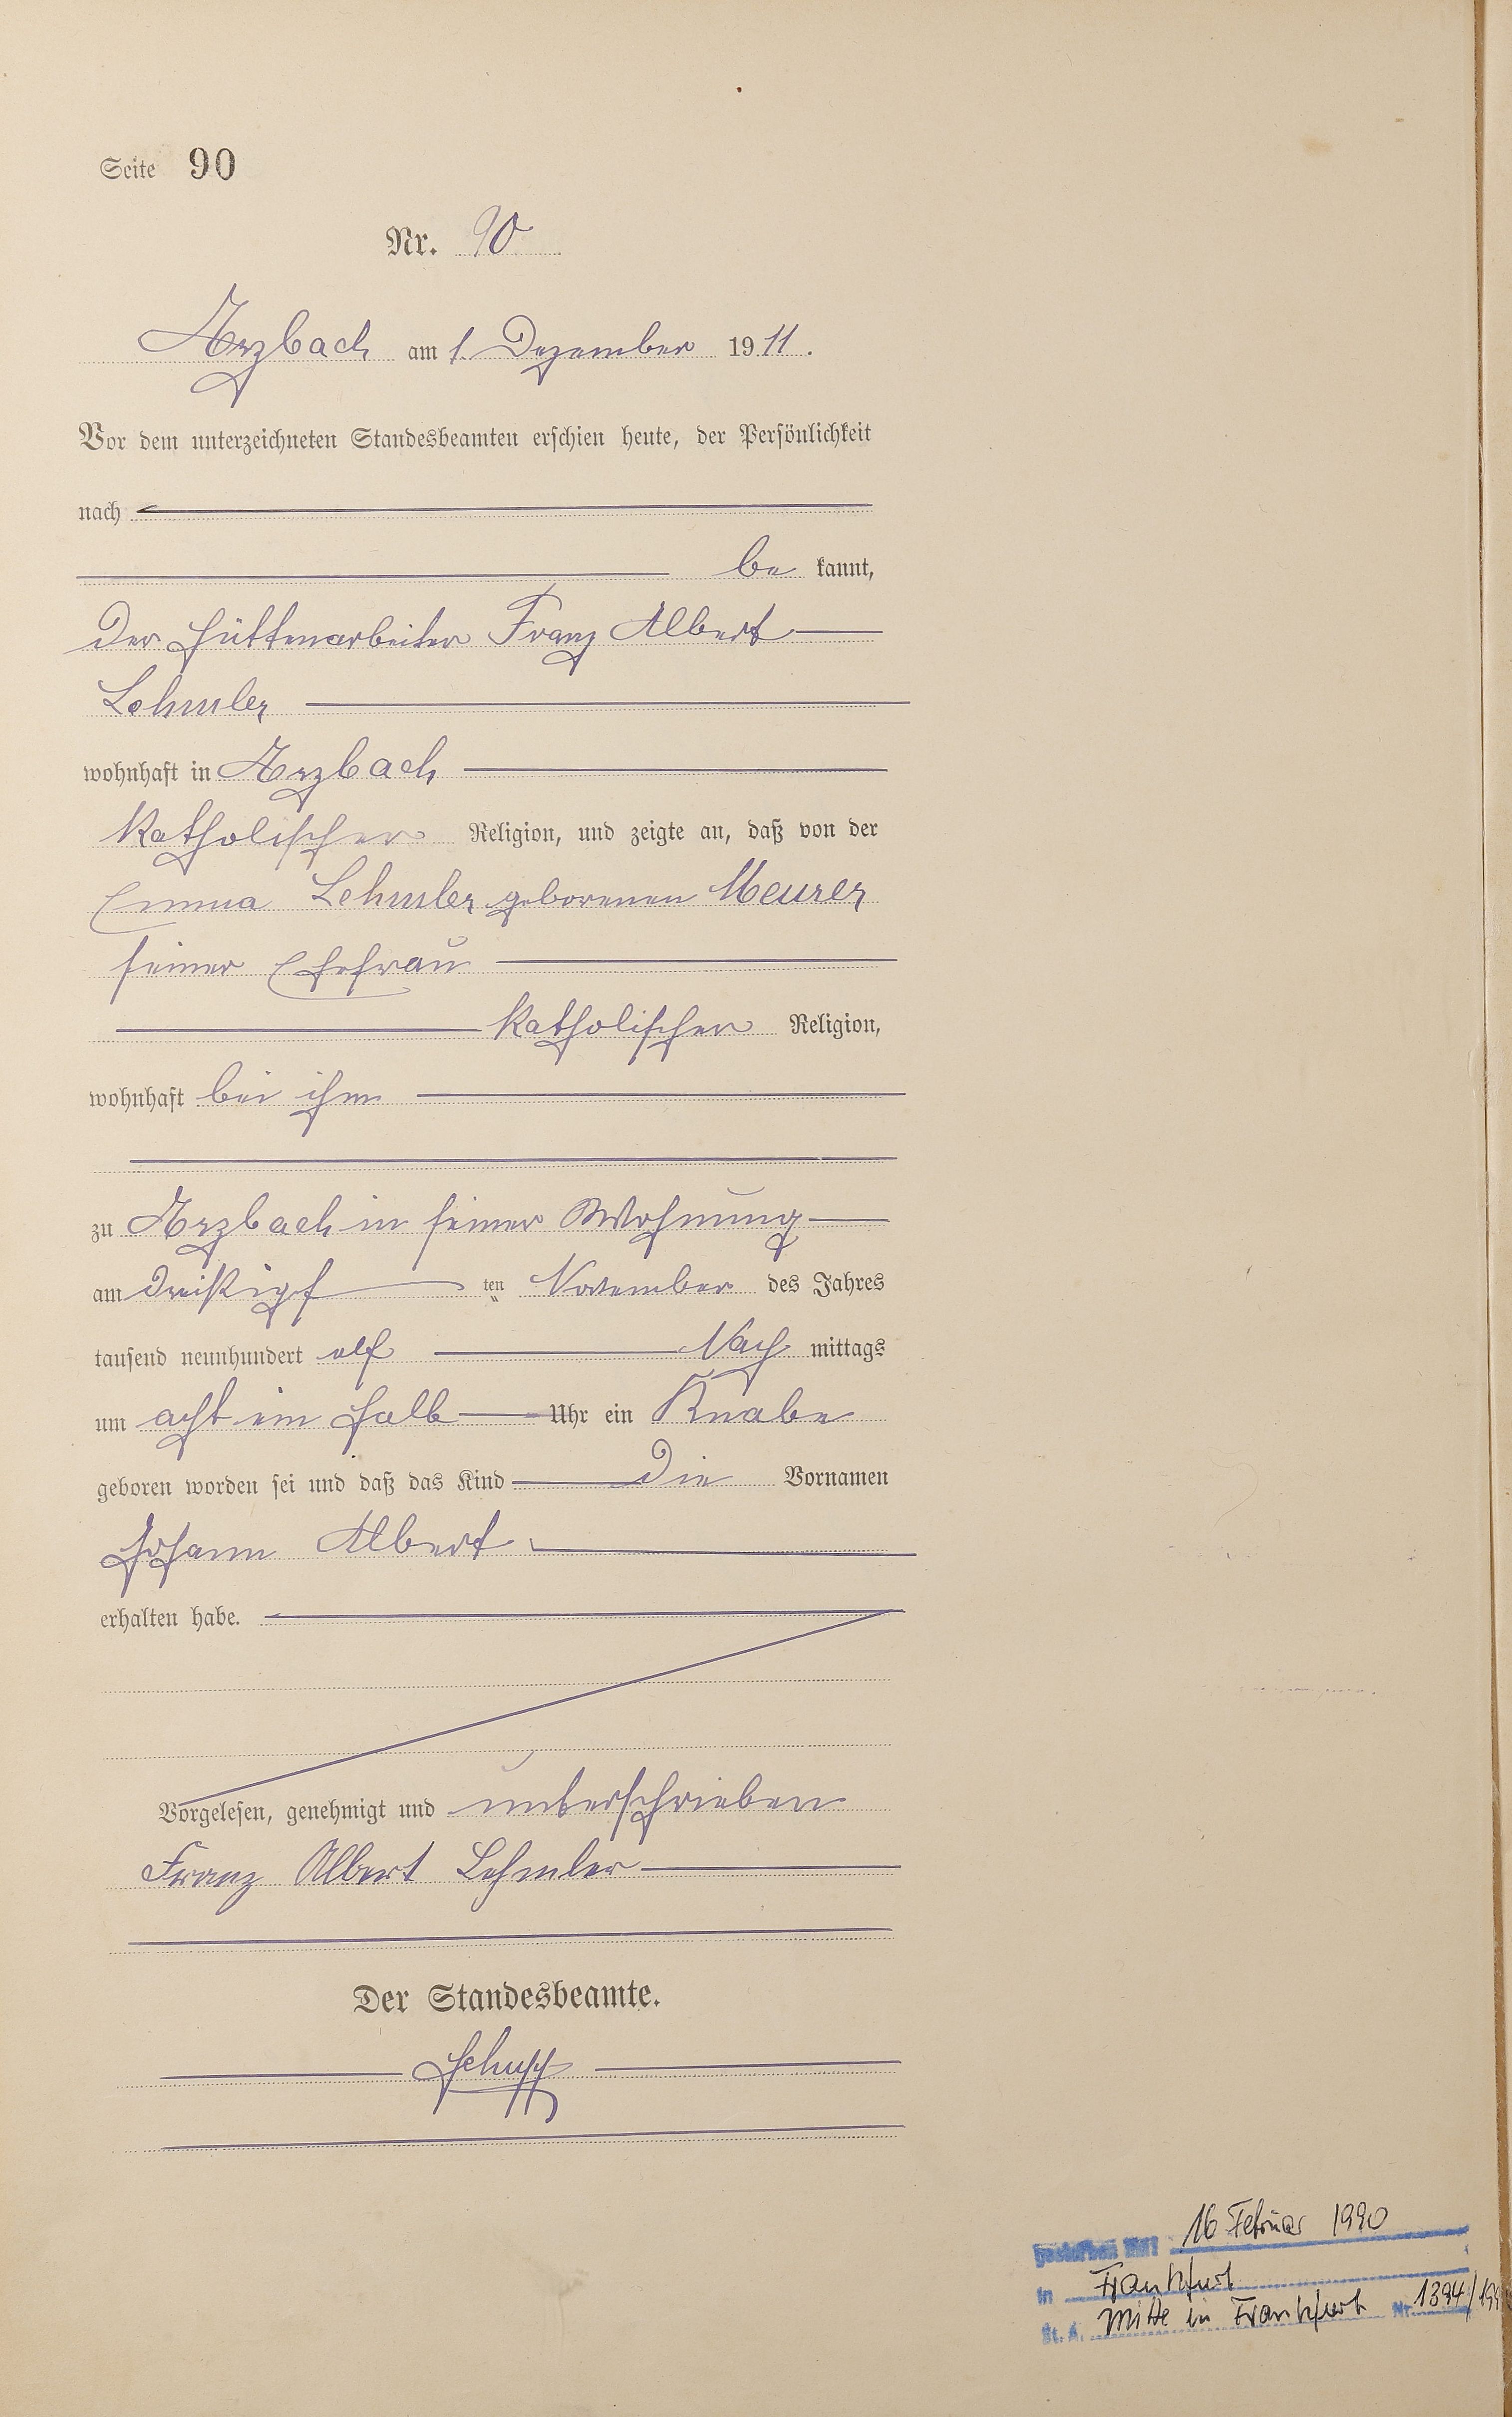 Seite 90
Nr. 90
Arzbach am 1. Dezember 1911.
Vor dem unterzeichneten Standesbeamten erschien heute, der Persönlichkeit
nach
be kannt,
der Hüttenarbeiter Franz Albert
Lehmler
wohnhaft in Arzbach
katholischer Religion, und zeigte an, daß von der
Emma Lehmler geborenen Meurer
seiner Ehefrau
katholischer Religion,
wohnhaft bei ihm
zu Arzbach in seiner Wohnung
am dreißigs ten November des Jahres
tausend neunhundert elf Nach mittags
um acht ein halb Uhr ein Knabe
geboren worden sei und daß das Kind die Vornamen
Johann Albert
erhalten habe.
Vorgelesen, genehmigt und unterschrieben
Franz Albert Lehmler
Der Standesbeamte.
gestorben am: 16 Februar 1990
in Frankfurt
St. A. Mitte in Frankfurt Nr. 1394/199